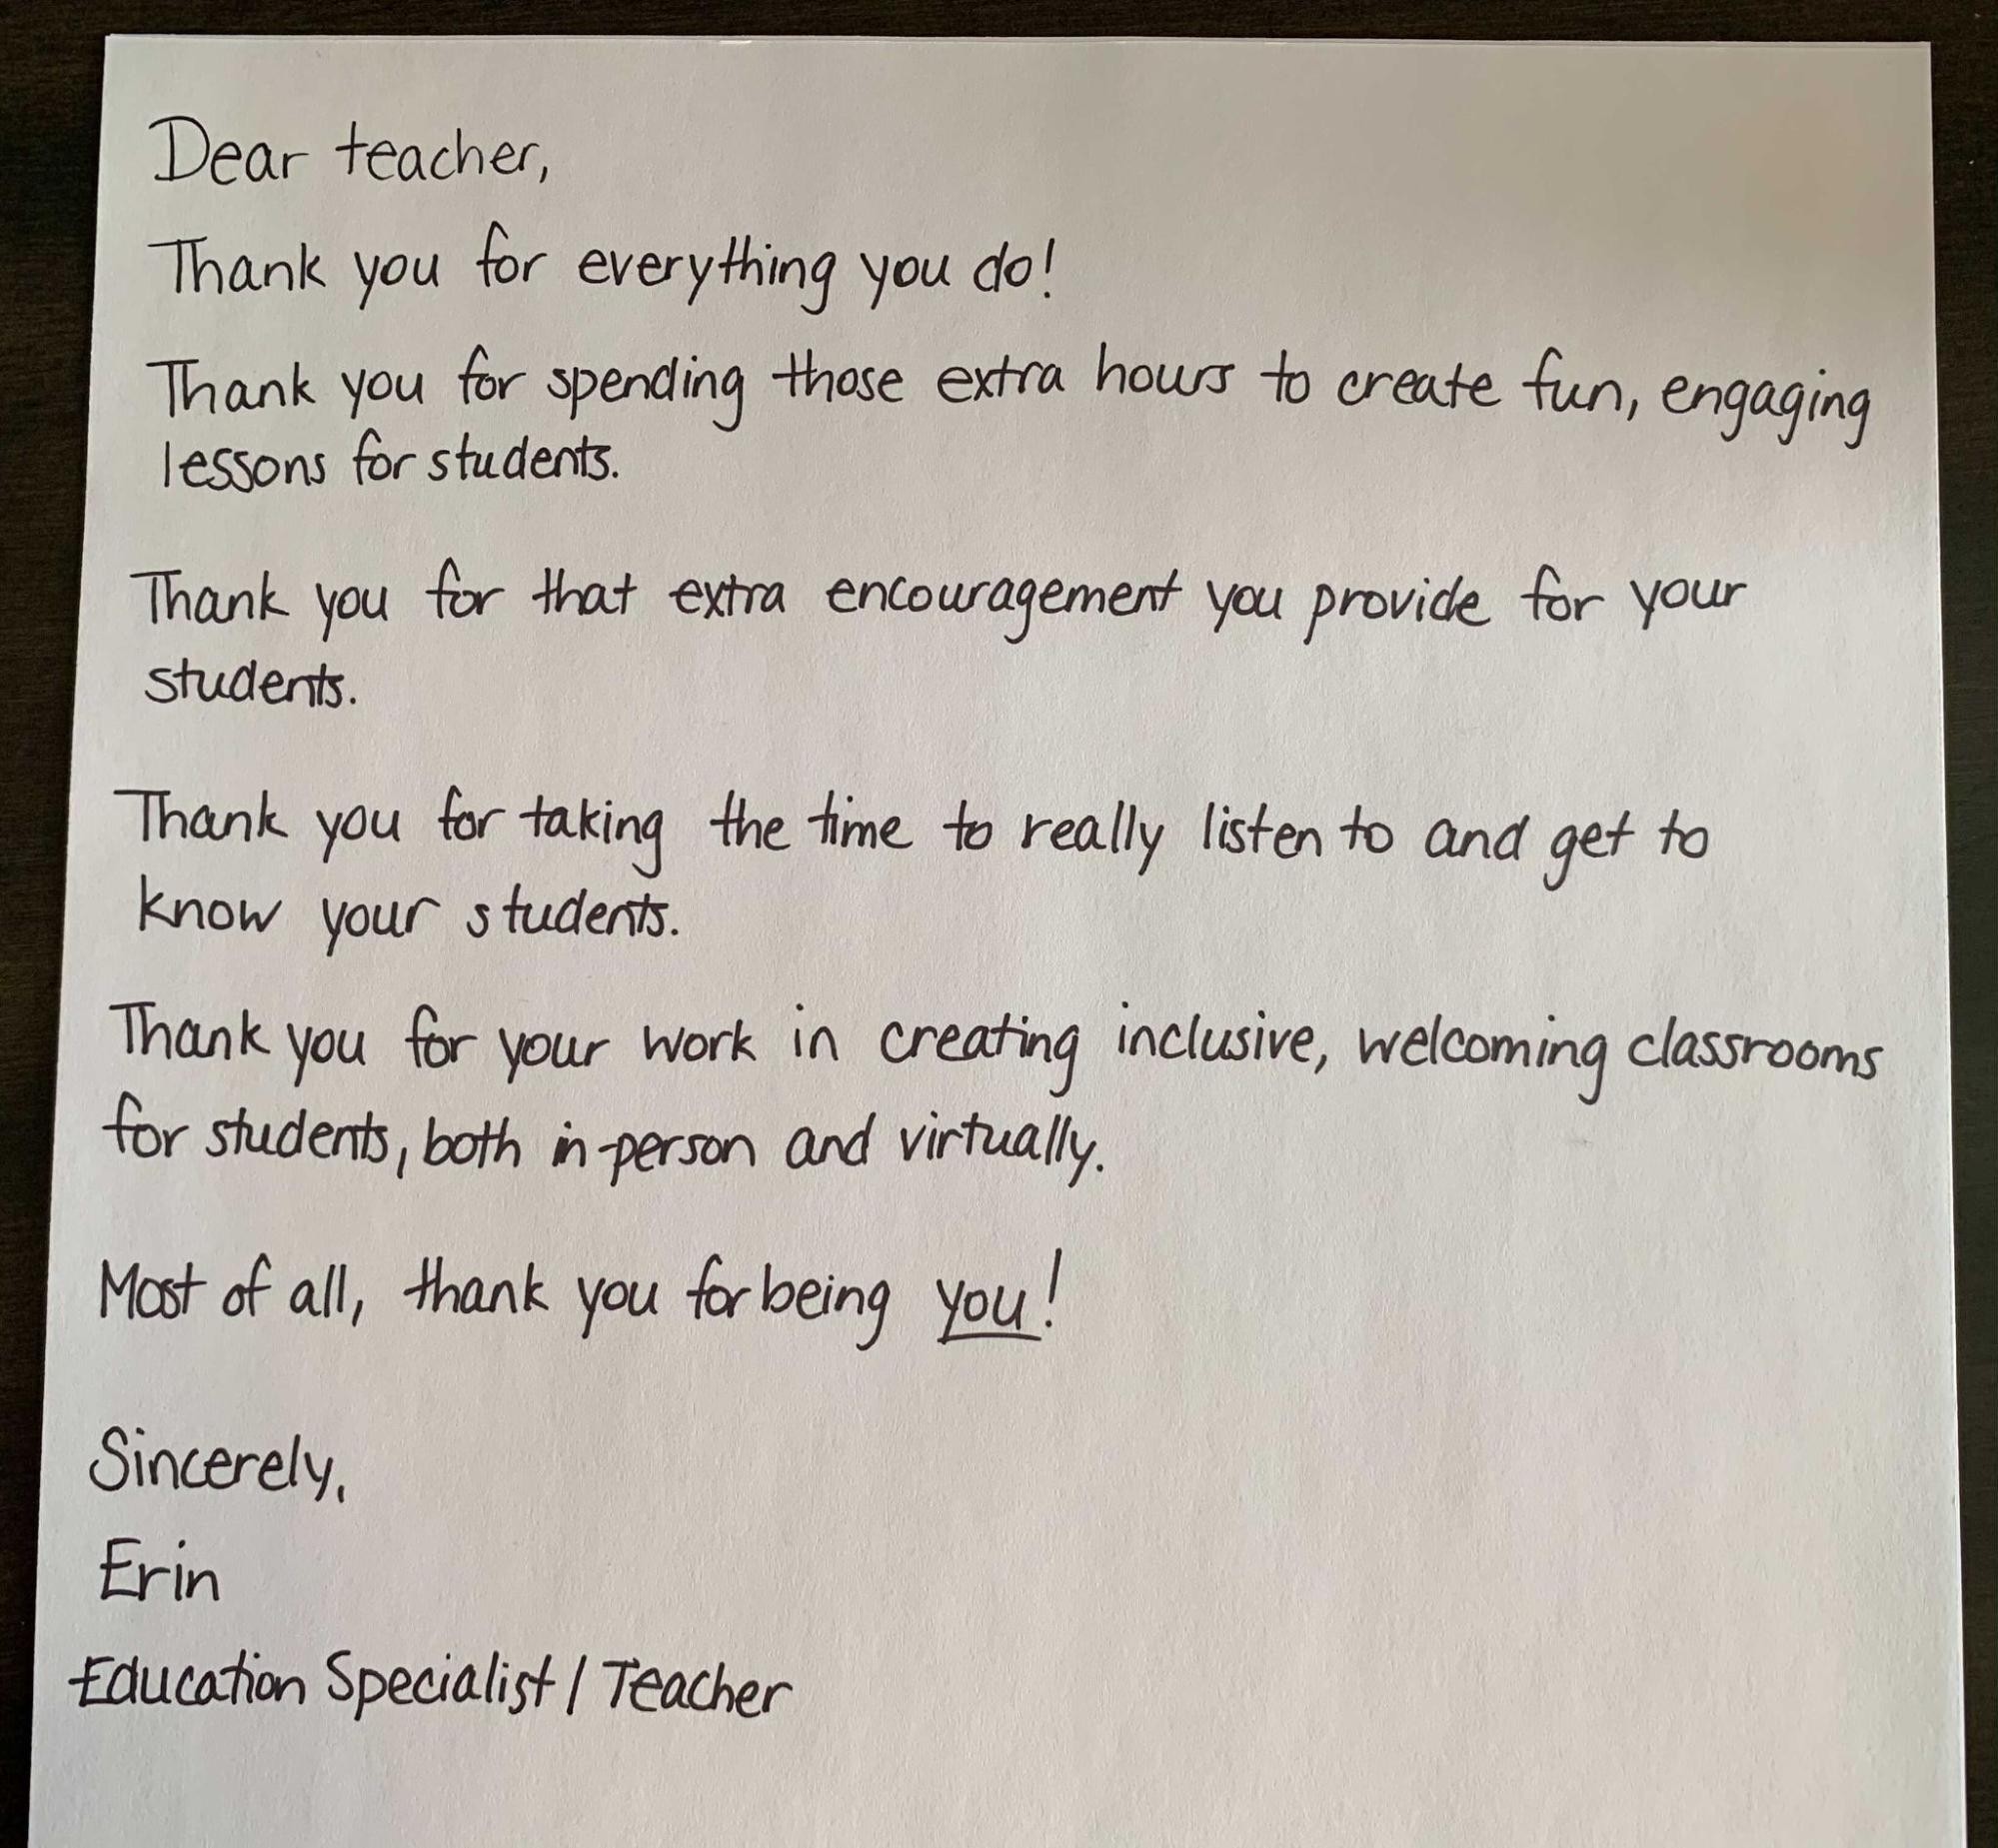 Dear teacher,
Thank you for everything you do!
Thank you for spending those extra hours to create fun, engaging
lessons for students.
Thank you for that extra encouragement you provide for your
students.
Thank you for taking the time to really listen to and get to
know your students.
Thank you for your work in creating inclusive, welcoming classrooms
for students, both in-person and virtually.
Most of all, thank you for being you!
Sincerely,
Erin
Education Specialist / Teacher